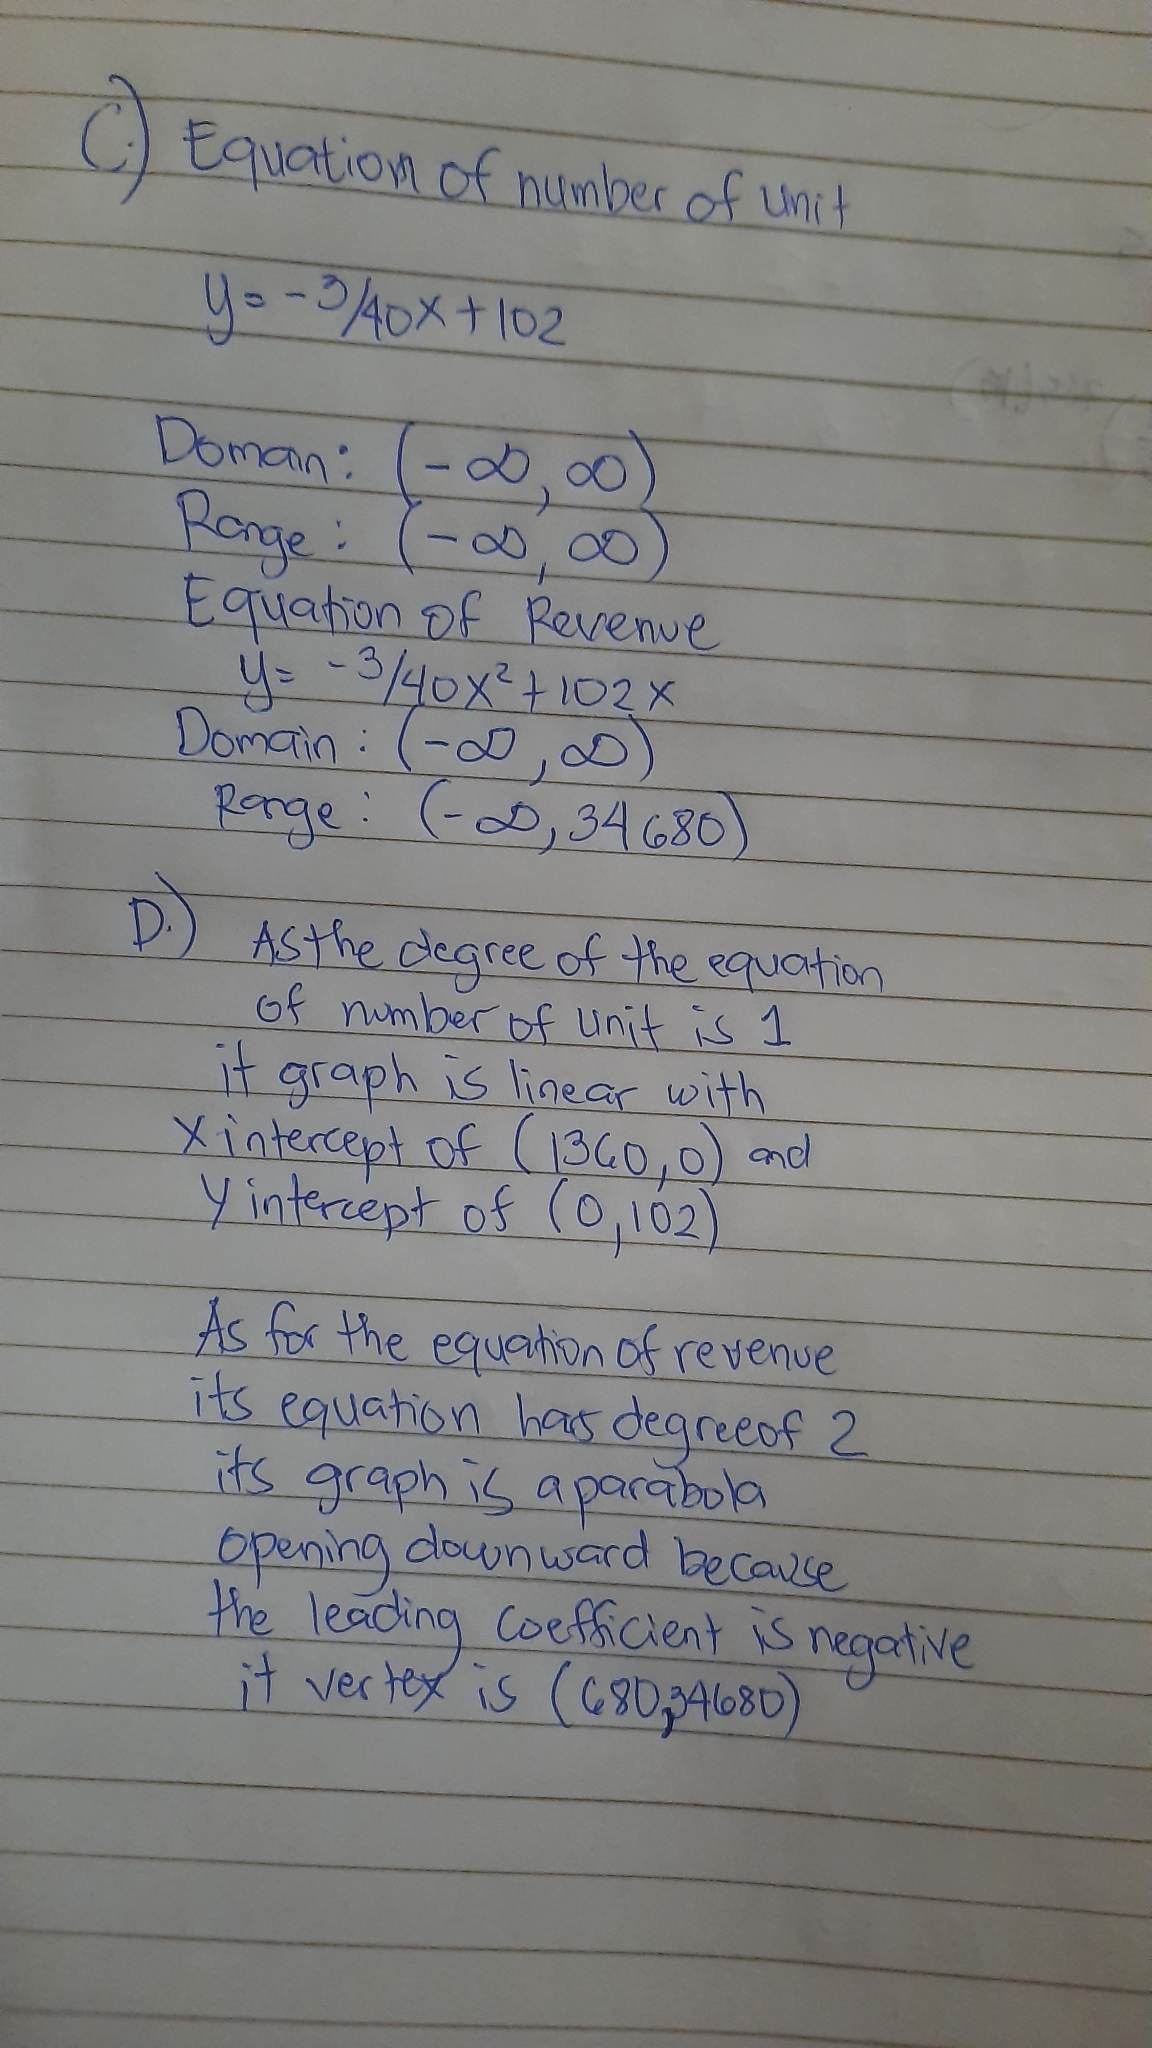 C.) Equation of number of unit
y = -3/40x + 102
Domain: (-∞, ∞)
Range: (-∞, ∞)
Equation of Revenue
y = -3/40x² + 102x
Domain: (-∞, ∞)
Range: (-∞, 34680)
D.) As the degree of the equation
of number of unit is 1
it graph is linear with
x intercept of (1360, 0) and
y intercept of (0, 102)
As for the equation of revenue
its equation has degree of 2
its graph is a parabola
opening downward because
the leading coefficient is negative
it vertex is (680, 34680)